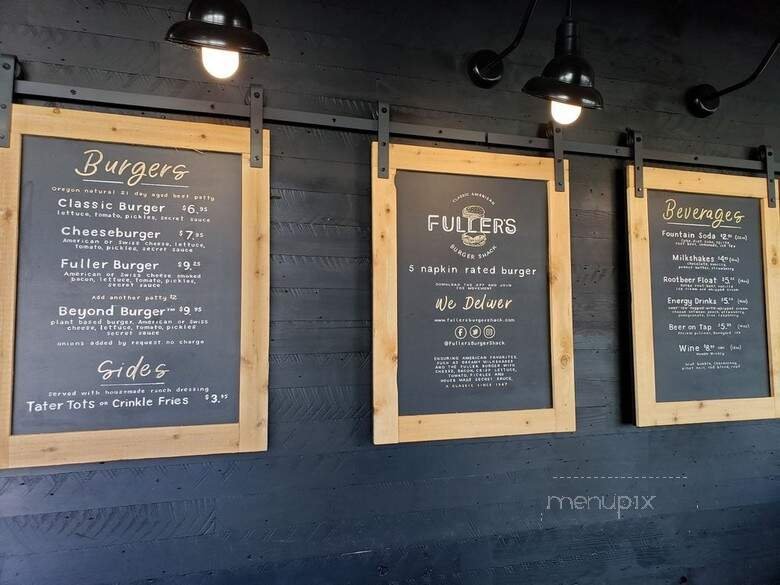 Burgers
Oregon natural 21 day aged beef patty
Classic Burger $6.95
lettuce, tomato, pickles, secret sauce
Cheeseburger $7.95
American or Swiss cheese, lettuce,
tomato, pickles, secret sauce
Fuller Burger $9.25
American or Swiss cheese smoked
bacon, lettuce, tomato, pickles,
secret sauce
Add another patty $2
Beyond Burger™ $9.95
plant based burger, American or Swiss
cheese, lettuce, tomato, pickles
secret sauce
onions added by request no charge
Sides
served with housemade ranch dressing
Tater Tots or Crinkle Fries $3.95
CLASSIC AMERICAN
FULLER'S
BURGER SHACK
5 napkin rated burger
DOWNLOAD THE APP AND JOIN
THE MOVEMENT
We Deliver
www.fullersburgershack.com
@FullersBurgerShack
ENSURING AMERICAN FAVORITES,
SUCH AS DREAMY MILKSHAKES
AND THE FULLER BURGER WITH
CHEESE, BACON, CRISP LETTUCE,
TOMATO, PICKLES AND
HOUSE MADE SECRET SAUCE,
A CLASSIC SINCE 1947
Beverages
Fountain Soda
Milkshakes
chocolate, vanilla,
peanut butter, strawberry
Rootbeer Float
Energy Drinks
Beer on Tap
Wine
menupix